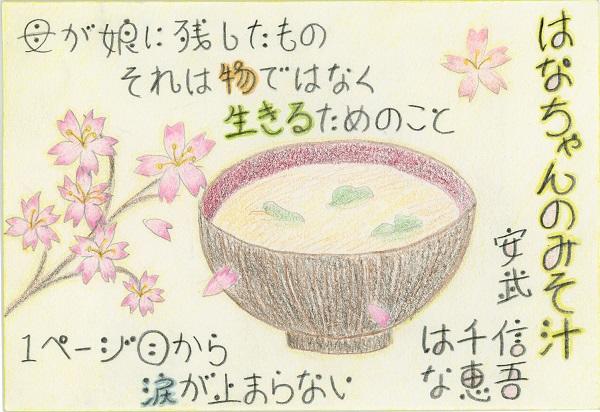 はなちゃんのみそ汁
安武
信吾
千恵
はな
母が娘に残したもの
それは物ではなく
生きるためのこと
1ページ目から
涙が止まらない